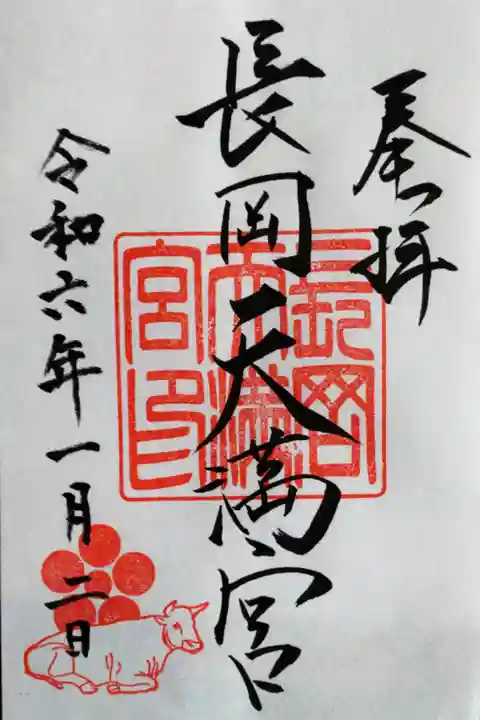 奉拝
長岡天満宮
長岡天満宮印
令和六年一月二日